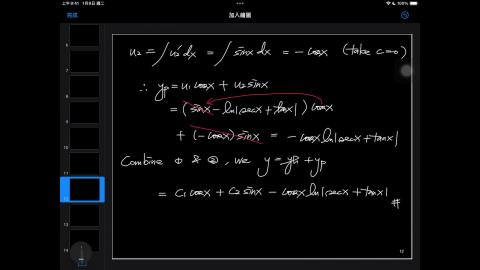 上午9:41 1月9日 週二
100%
完成
加入繪圖
6
7
8
9
10
11
12
13
14
u₂ = ∫u₂'dx = ∫sinx dx = -cosx (take c=0)
∴ yp = u₁cosx + u₂sinx
= (sinx - ln|secx + tanx|) cosx
+ (-cosx) sinx = -cosx ln|secx + tanx|
Combine ① & ②, we y = yh + yp
= C₁cosx + C₂sinx - cosx ln|secx + tanx| #
12